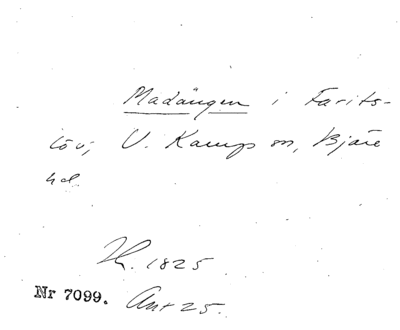 Madängen i Farits-
löv, V. Karups sn, Bjäre
hd.
Th. 1825
Nr 7099. Ant 25.